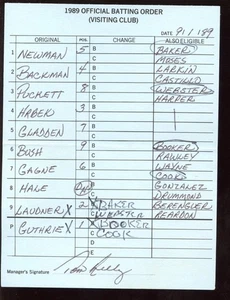 1989 OFFICIAL BATTING ORDER
(VISITING CLUB)
DATE 9/1/89
ORIGINAL POS. CHANGE ALSO ELIGIBLE
1 NEWMAN 5 B C BAKER
MOSES
2 BACKMAN 4 B C LARKIN
CASTILLO
3 PUCKETT 8 B C WEBSTER
HARPER
4 HRBEK 3 B C
5 GLADDEN 7 B C
6 BUSH 9 B C BOOKER
RAWLEY
7 GAGNE 6 B C WAYNE
COOK
8 HALE DH B C GONZALEZ
DRUMMOND
9 LAUDNER X 2 B BAKER BERENGUER
C WEBSTER REARDON
P GUTHRIE X 1 B BOOKER
C COOK
D
E
Manager's Signature Tom Kelly